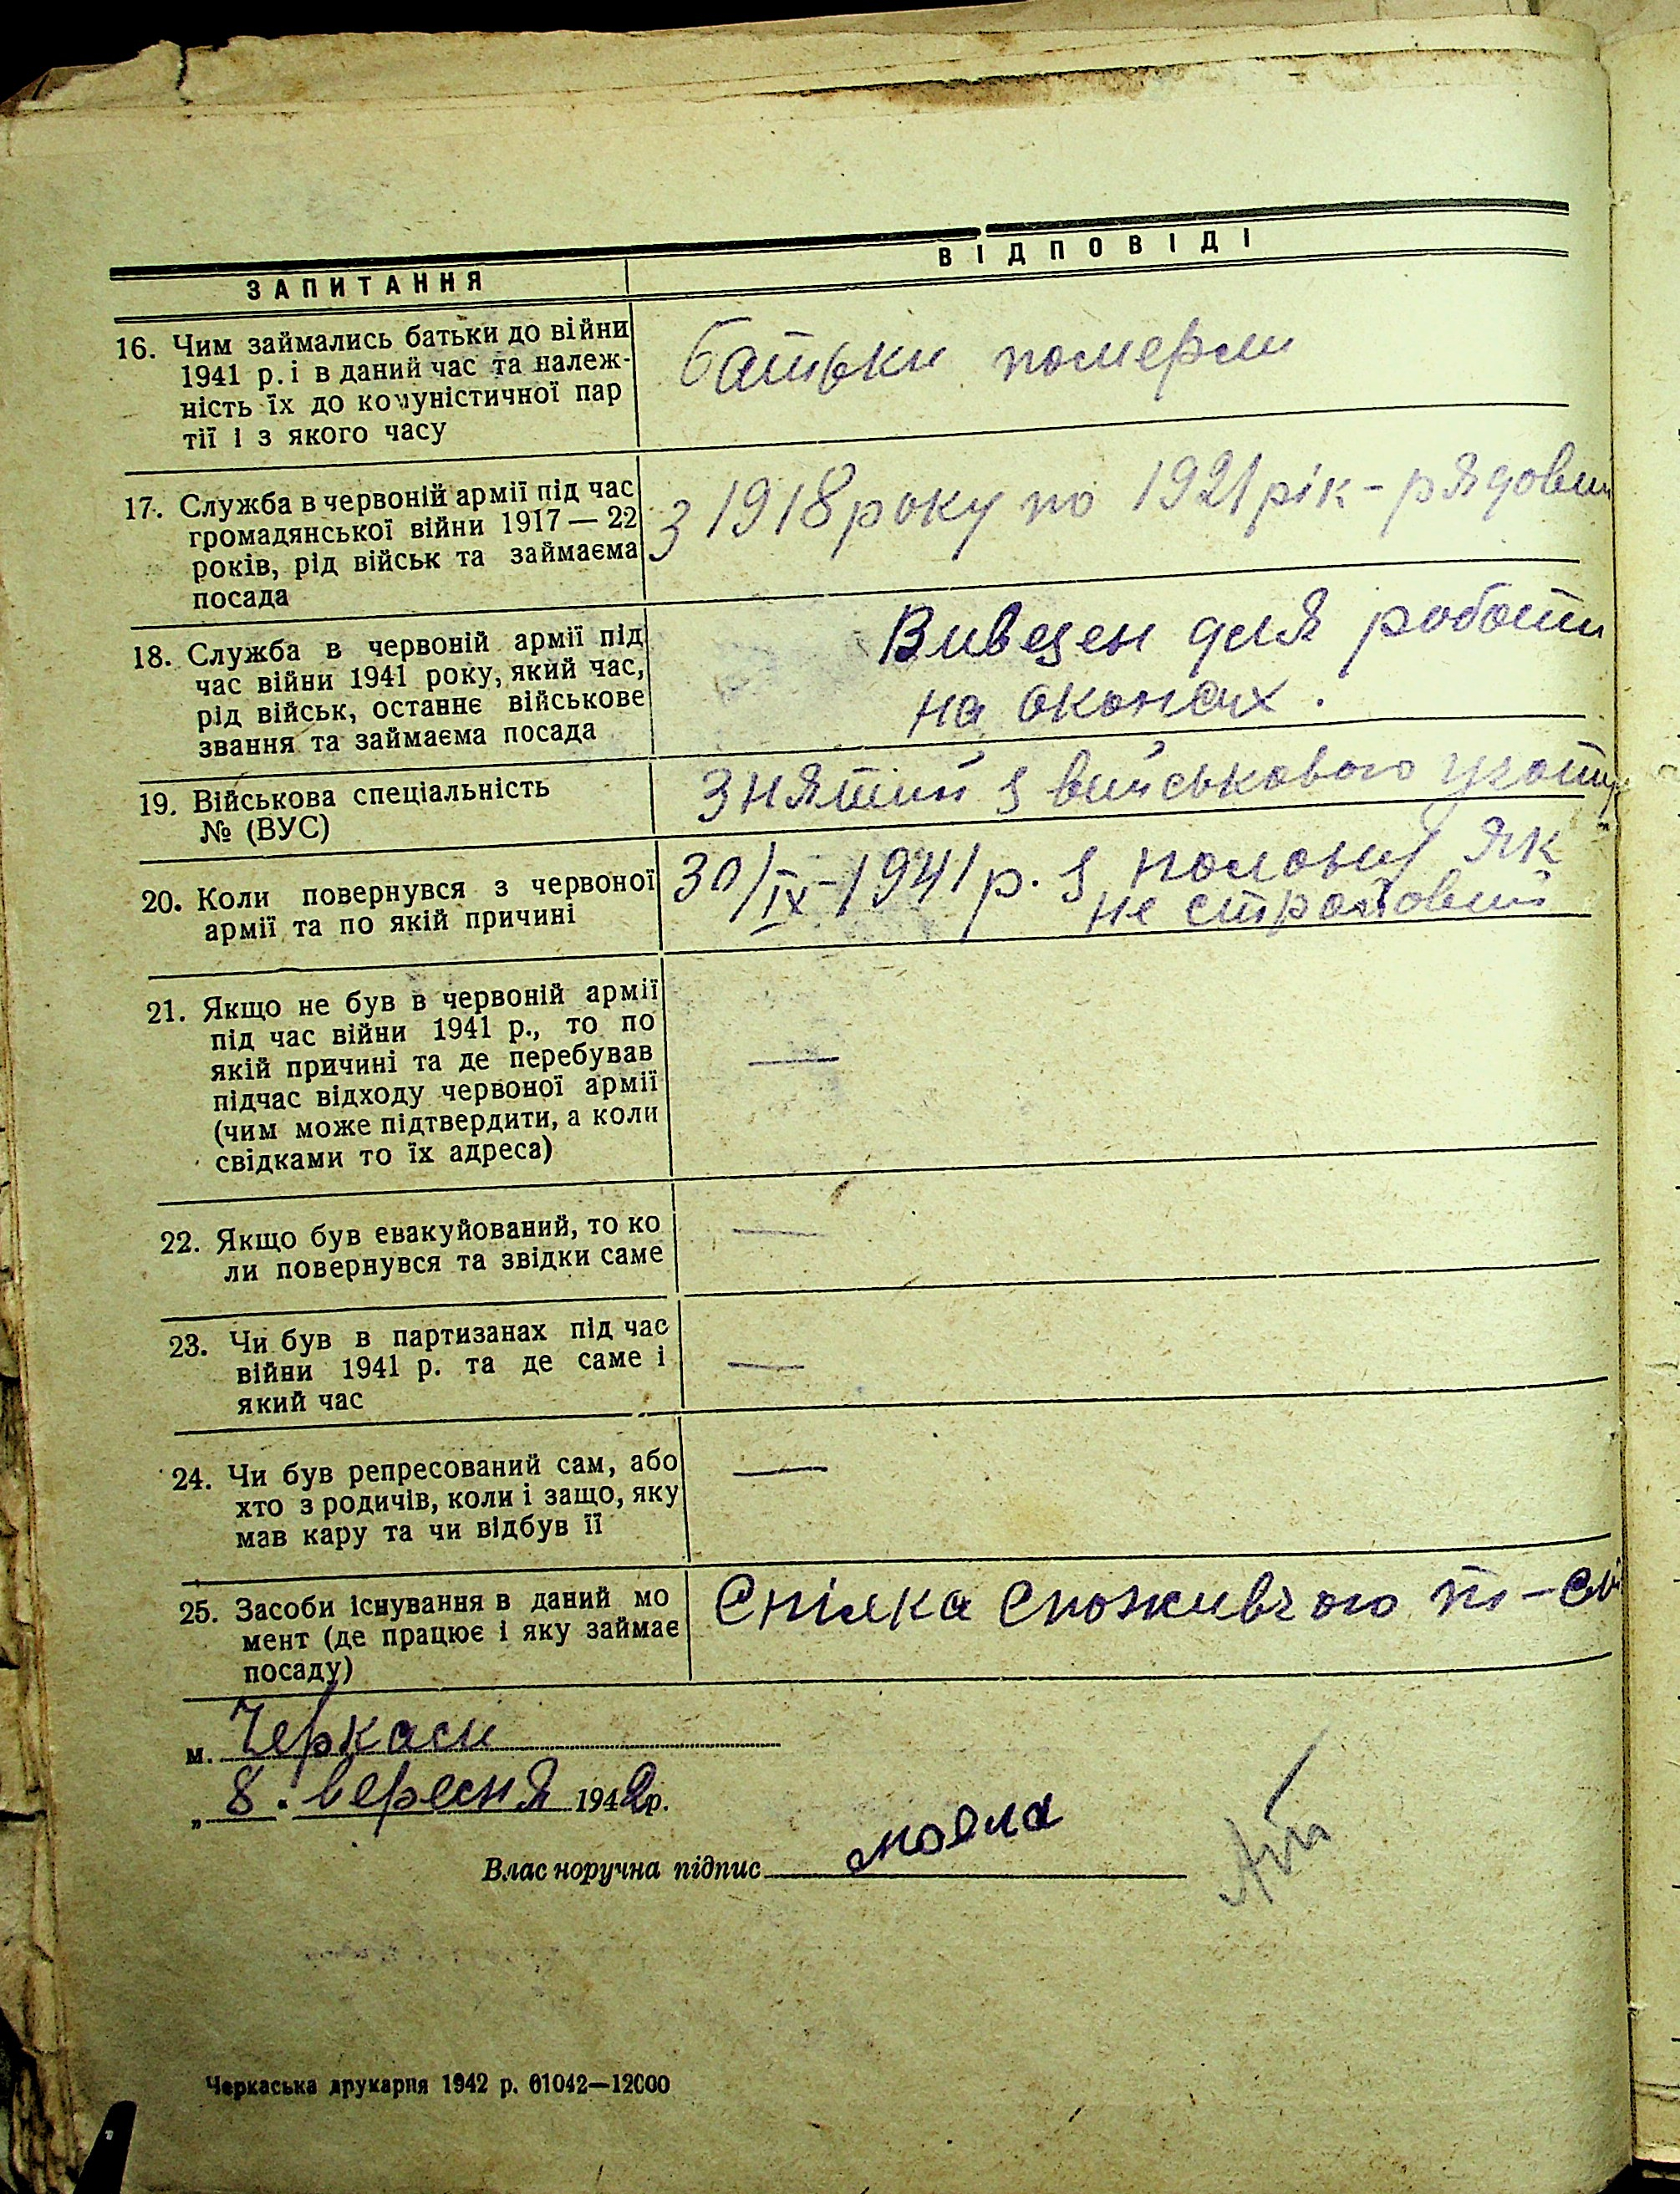 ЗАПИТАННЯ
ВІДПОВІДІ
16. Чим займались батьки до війни
1941 р. і в даний час та належ-
ність їх до комуністичної пар
тії і з якого часу
батьки померли
17. Служба в червоній армії під час
громадянської війни 1917 — 22
років, рід військ та займаєма
посада
з 1918 року по 1921 рік - рядовий
18. Служба в червоній армії під
час війни 1941 року, який час,
рід військ, останнє військове
звання та займаєма посада
Вивезен для роботи
на окопах.
19. Військова спеціальність
№ (ВУС)
Знятий з військового учоту
20. Коли повернувся з червоної
армії та по якій причині
30/IX-1941 р. з полону як
не стройовий
21. Якщо не був в червоній армії
під час війни 1941 р., то по
якій причині та де перебував
підчас відходу червоної армії
(чим може підтвердити, а коли
свідками то їх адреса)
—
22. Якщо був евакуйований, то ко
ли повернувся та звідки саме
—
23. Чи був в партизанах під час
війни 1941 р. та де саме і
який час
—
24. Чи був репресований сам, або
хто з родичів, коли і защо, яку
мав кару та чи відбув її
—
25. Засоби існування в даний мо
мент (де працює і яку займає
посаду)
Спілка Споживчого т-ва
м. Черкаси
„ 8. вересня 1942р.
Власноручна підпис
Черкаська друкарня 1942 р. 61042—12000